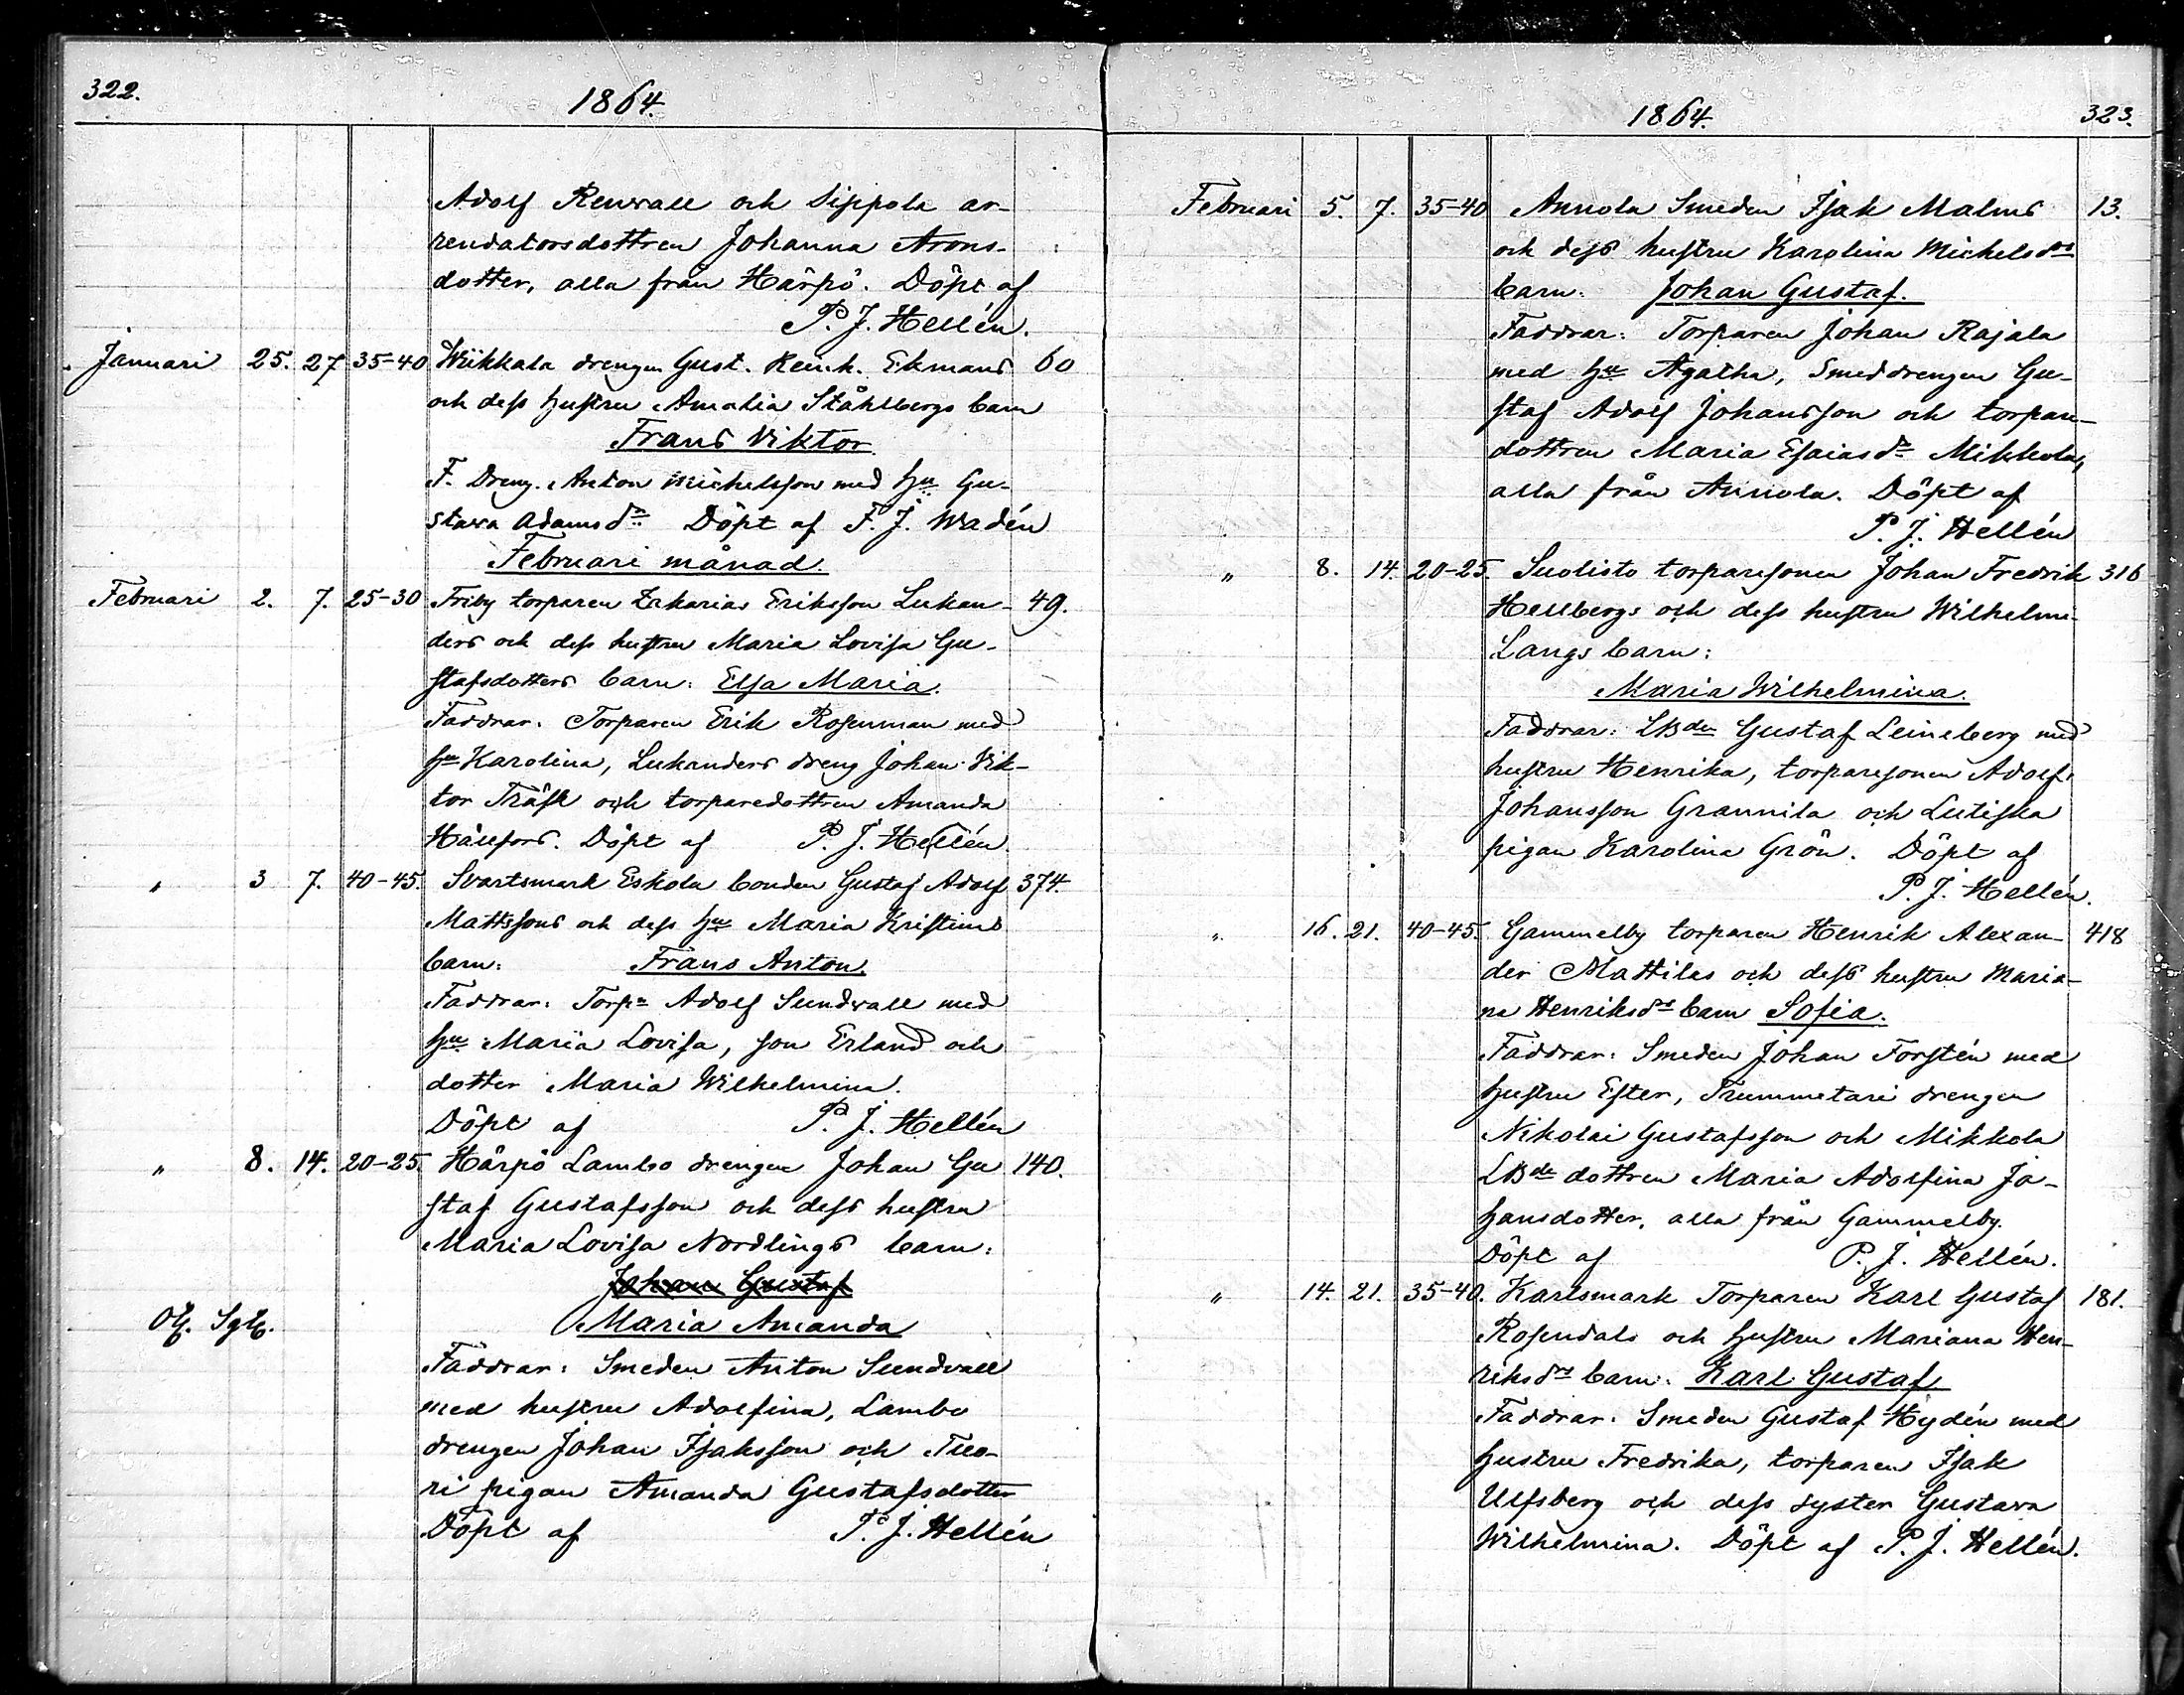 322.
1864.
Adolf Renwall och Sippola ar-
rendatorsdottren Johanna Arons-
dotter, alla från Härpö. Döpt af
P. J. Hellén.
Januari 25. 27 35-40 Wiikkala drengen Gust. Reinh. Ekmans 60
och dess hustru Amalia Ståhlbergs barn
Frans Viktor.
F. Dreng. Anton Michelsson med hu Gu-
stava Adamsdr Döpt af F. J. Wadén
Februari månad.
Februari 2. 7. 25-30 Friby torparen Zakarias Eriksson Lukan- 49.
ders och dess hustru Maria Lovisa Gu-
stafsdotters barn: Elsa Maria.
Faddrar: Torparen Erik Rosenman med
hu Karolina, Lukanders dreng Johan Vik-
tor Träsk och torparedottren Amanda
Hällfors. Döpt af P. J. Hellén.
" 3 7. 40-45. Svartsmark Eskola bonden Gustaf Adolf 374.
Mattssons och dess hu Maria Kristins
barn: Frans Anton.
Faddrar: Torpn Adolf Sundvall med
hu Maria Lovisa, son Erland och
dotter Maria Wilhelmina.
Döpt af P. J. Hellén
" 8. 14. 20-25. Härpö Lambo drengen Johan Gu 140.
staf Gustafsson och dess hustru
Maria Lovisa Nordlings barn:
Johan Gustaf
Maria Amanda
Faddrar: Smeden Anton Sundvall
med hustru Adolfina, Lambo
drengen Johan Isaksson och Tuo-
ri pigan Amanda Gustafsdotter
Döpt af P. J. Hellén
1864.
323.
Februari 5. 7. 35-40 Annola Smeden Isak Malms 13.
och dess hustru Karolina Michelsdrs
barn: Johan Gustaf.
Faddrar: Torparen Johan Rajala
med hu Agatha, Smeddrengen Gu-
staf Adolf Johansson och torpare-
dottren Maria Esaiasdr Mikkola,
alla från Annola. Döpt af
P. J. Hellén
" 8. 14. 20-25. Suolisto torparesonen Johan Fredrik 316
Hellbergs och dess hustru Wilhelmi-
Langs barn:
Maria Wilhelmina.
Faddrar: LBden Gustaf Leineberg med
hustru Henrika, torparesonen Adolf
Johansson Grannila och Lutiska
pigan Karolina Grön. Döpt af
P. J. Hellén.
" 16. 21. 40-45. Gammelby torparen Henrik Alexan- 418
der Mattilas och dess hustru Maria-
na Henriksdrs barn Sofia.
Faddrar: Smeden Johan Forstén med
hustru Ester, Trummetari drengen
Nikolai Gustafsson och Mikkola
LBde dottren Maria Adolfina Jo-
hansdotter, alla från Gammelby.
Döpt af P. J. Hellén.
" 14. 21. 35-40. Karlsmark Torparen Karl Gustaf 181.
Rosendals och hustru Mariana Hen-
riksdrs barn: Karl Gustaf
Faddrar: Smeden Gustaf Hydén med
hustru Fredrika, torparen Isak
Ulfsberg och dess syster Gustava
Wilhelmina. Döpt af P. J. Hellén.